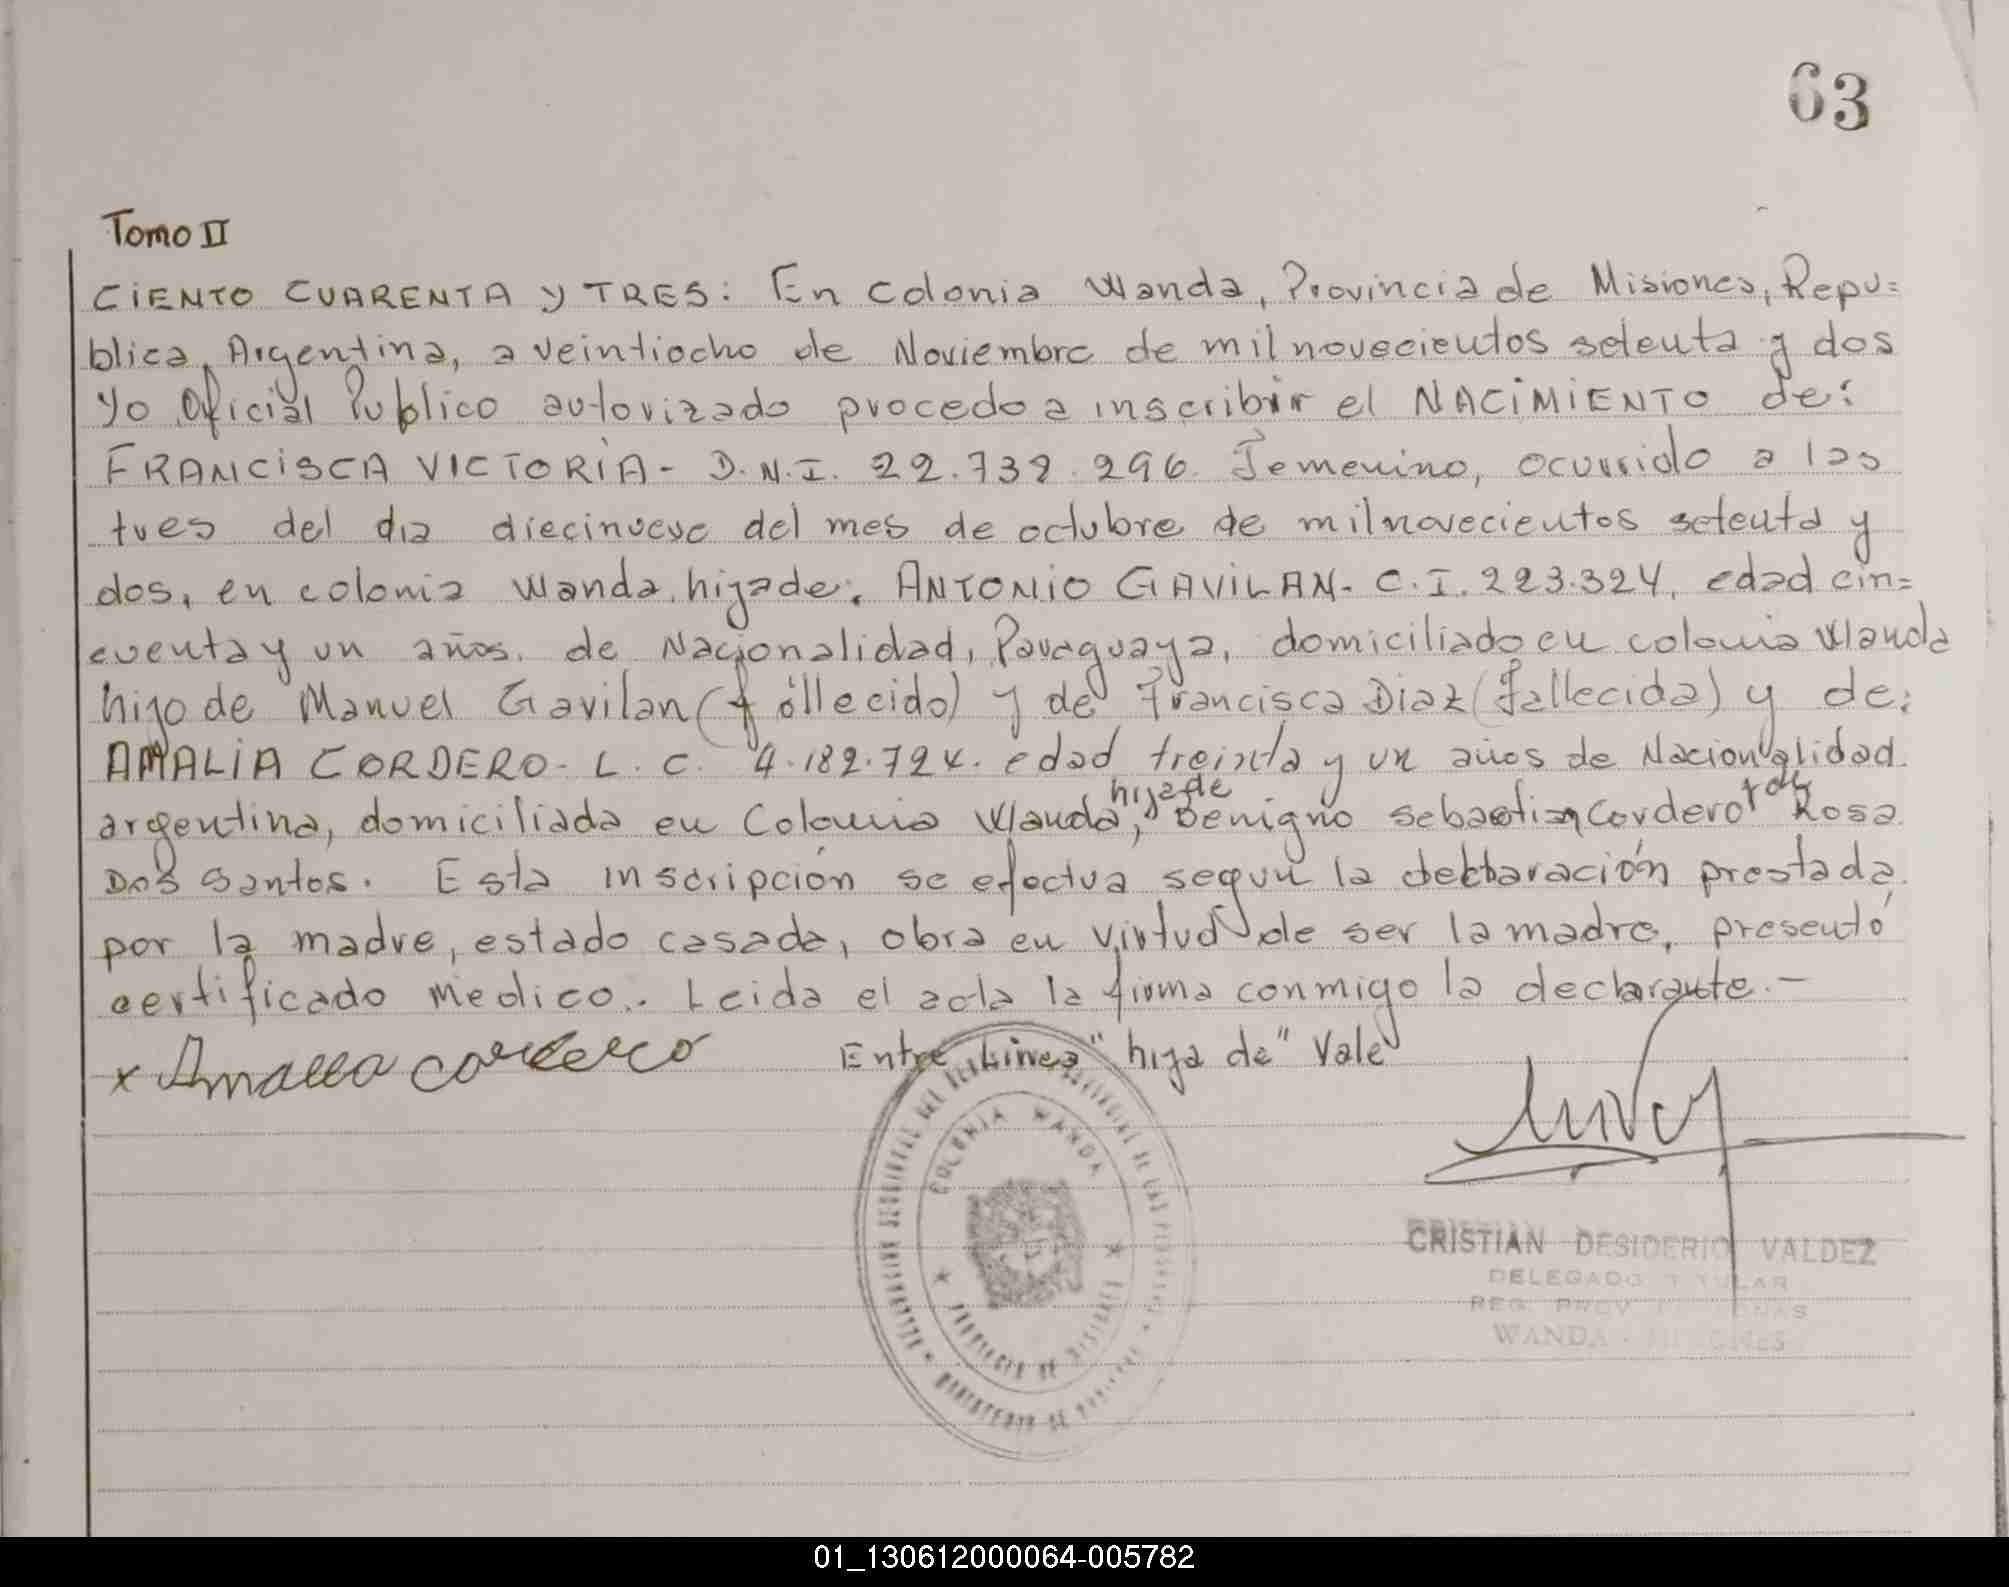 63
Tomo II
CIENTO CUARENTA y TRES: En Colonia Wanda, Provincia de Misiones, Repu=
blica, Argentina, a veintiocho de Noviembre de mil novecientos setenta y dos
Yo Oficial Publico autorizado procedo a inscribir el NACIMIENTO de:
FRANCISCA VICTORIA- D.N.I. 22.732.296. Femenino, ocurrido a las
tres del dia diecinueve del mes de octubre de mil novecientos setenta y
dos, en colonia Wanda, hija de: ANTONIO GAVILAN- C.I. 223.324, edad cin=
cuenta y un años, de Nacionalidad, Paraguaya, domiciliado en colonia Wanda
hijo de Manuel Gavilan (fallecido) y de Francisca Diaz (fallecida) y de:
AMALIA CORDERO- L.C. 4.182.724. edad treinta y un años de Nacionalidad
argentina, domiciliada en Colonia Wanda, hija de Benigno Sebastian Cordero y de Rosa
Dos Santos. Esta inscripción se efectua segun la declaración prestada
por la madre, estado casada, obra en virtud de ser la madre, presentó
certificado Medico. Leida el acta la firma conmigo la declarante.-
x Amalia Cordero Entre Linea "hija de" Vale
COLONIA WANDA
PROVINCIA DE MISIONES
CRISTIAN DESIDERIO VALDEZ
DELEGADO TITULAR
REG. PROV. PERSONAS
WANDA - MISIONES
01_130612000064-005782